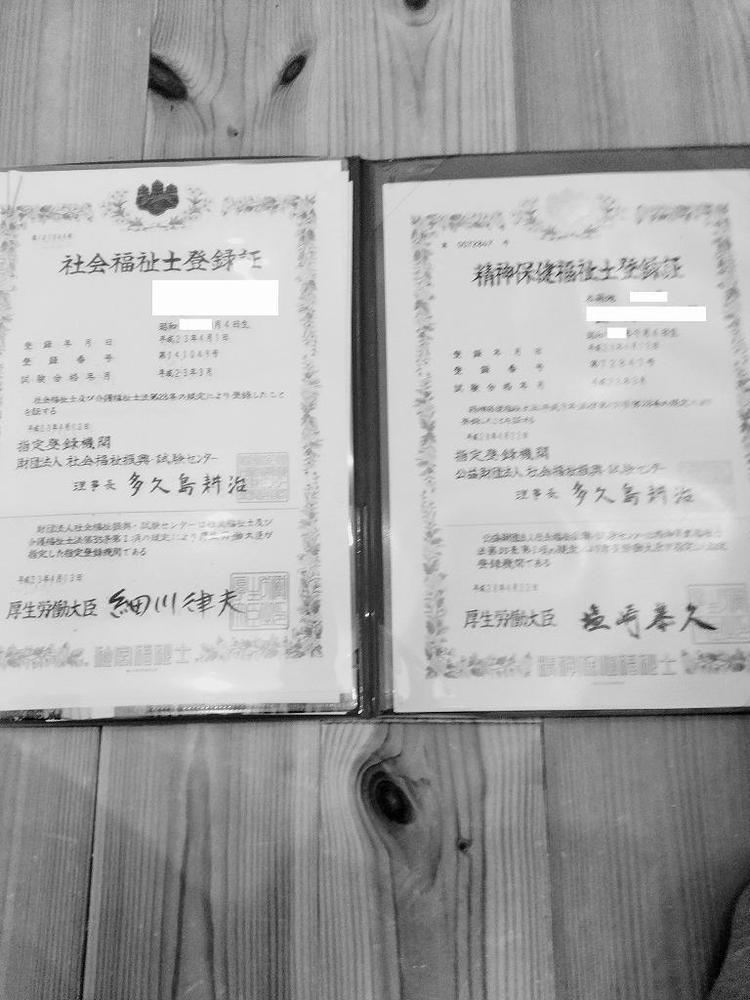 社会福祉士登録証
昭和 月4日生
登録年月日 平成23年4月1日
登録番号 第141049号
試験合格年月 平成23年3月
社会福祉士及び介護福祉士法第28条の規定により登録したこと
を証する
指定登録機関
財団法人 社会福祉振興・試験センター
理事長 多久島耕治
財団法人社会福祉振興・試験センターは社会福祉士及び
介護福祉士法第35条第1項の規定により厚生労働大臣が
指定した指定登録機関である
厚生労働大臣 細川律夫
社会福祉士
精神保健福祉士登録証
登録年月日
登録番号 第72847号
試験合格年月
登録したことを証する
指定登録機関
公益財団法人 社会福祉振興・試験センター
理事長 多久島耕治
登録機関である
厚生労働大臣 塩崎恭久
精神保健福祉士